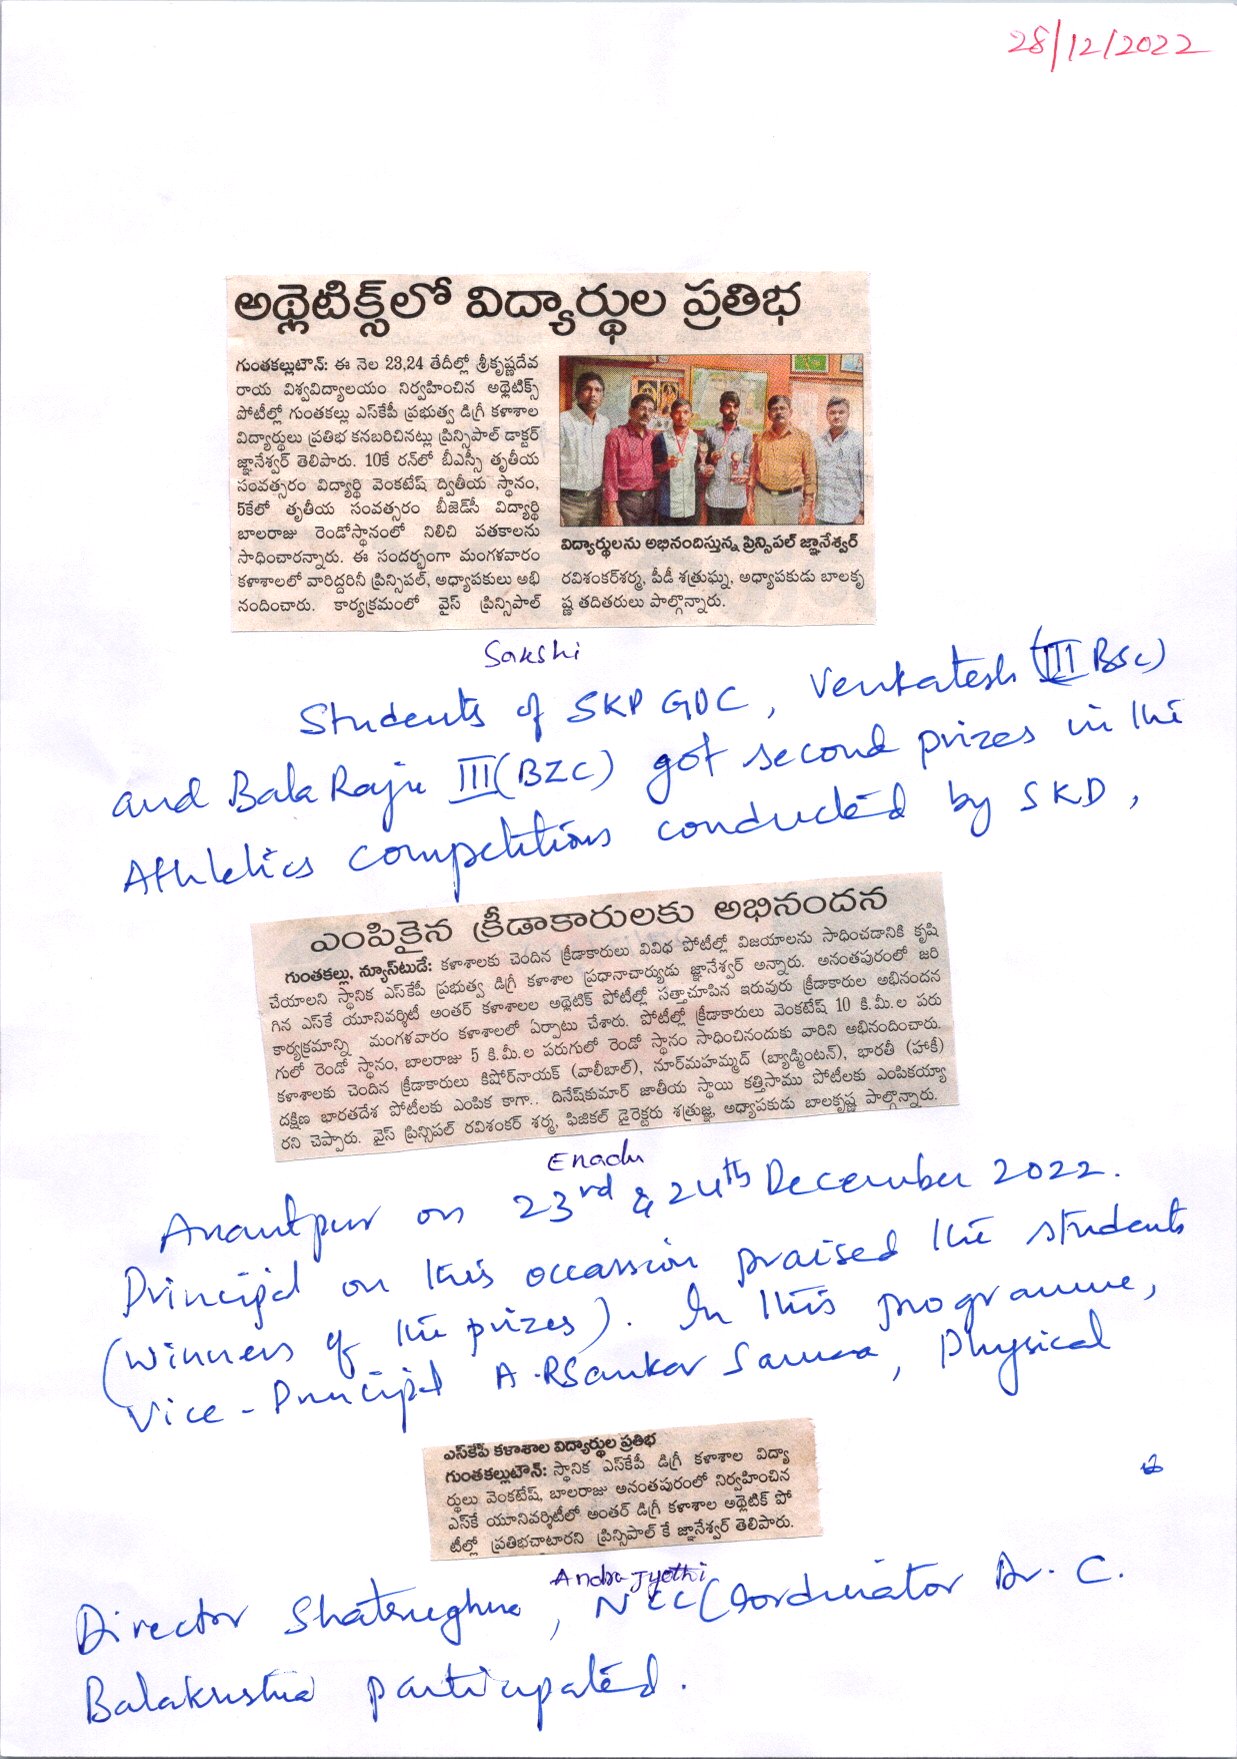 28/12/2022
అథ్లెటిక్స్‌లో విద్యార్థుల ప్రతిభ
గుంతకల్లుటౌన్: ఈ నెల 23,24 తేదీల్లో శ్రీకృష్ణదేవ
రాయ విశ్వవిద్యాలయం నిర్వహించిన అథ్లెటిక్స్
పోటీల్లో గుంతకల్లు ఎస్‌కేపీ ప్రభుత్వ డిగ్రీ కళాశాల
విద్యార్థులు ప్రతిభ కనబరిచినట్లు ప్రిన్సిపాల్ డాక్టర్
జ్ఞానేశ్వర్ తెలిపారు. 10కే రన్‌లో బీఎస్సీ తృతీయ
సంవత్సరం విద్యార్థి వెంకటేష్ ద్వితీయ స్థానం,
5కేలో తృతీయ సంవత్సరం బీజెడ్‌సీ విద్యార్థి
బాలరాజు రెండోస్థానంలో నిలిచి పతకాలను
సాధించారన్నారు. ఈ సందర్భంగా మంగళవారం
కళాశాలలో వారిద్దరినీ ప్రిన్సిపల్, అధ్యాపకులు అభి
నందించారు. కార్యక్రమంలో వైస్ ప్రిన్సిపాల్
విద్యార్థులను అభినందిస్తున్న ప్రిన్సిపల్ జ్ఞానేశ్వర్
రవిశంకర్‌శర్మ, పీడీ శత్రుఘ్న, అధ్యాపకుడు బాలకృ
ష్ణ తదితరులు పాల్గొన్నారు.
Sakshi
Students of SKP GDC, Venkatesh (III BSc)
and Bala Raju III (BZC) got second prizes in the
Athletics competitions conducted by SKD,
ఎంపికైన క్రీడాకారులకు అభినందన
గుంతకల్లు, న్యూస్‌టుడే: కళాశాలకు చెందిన క్రీడాకారులు వివిధ పోటీల్లో విజయాలను సాధించడానికి కృషి
చేయాలని స్థానిక ఎస్‌కేపీ ప్రభుత్వ డిగ్రీ కళాశాల ప్రధానాచార్యుడు జ్ఞానేశ్వర్ అన్నారు. అనంతపురంలో జరి
గిన ఎస్‌కే యూనివర్శిటీ అంతర్ కళాశాలల అథ్లెటిక్ పోటీల్లో సత్తాచూపిన ఇరువురు క్రీడాకారుల అభినందన
కార్యక్రమాన్ని మంగళవారం కళాశాలలో ఏర్పాటు చేశారు. పోటీల్లో క్రీడాకారులు వెంకటేష్ 10 కి.మీ.ల పరు
గులో రెండో స్థానం, బాలరాజు 5 కి.మీ.ల పరుగులో రెండో స్థానం సాధించినందుకు వారిని అభినందించారు.
కళాశాలకు చెందిన క్రీడాకారులు కిషోర్‌నాయక్ (వాలీబాల్), నూర్‌మహమ్మద్ (బ్యాడ్మింటన్), భారతీ (హాకీ)
దక్షిణ భారతదేశ పోటీలకు ఎంపిక కాగా.. దినేష్‌కుమార్ జాతీయ స్థాయి కత్తిసాము పోటీలకు ఎంపికయ్యా
రని చెప్పారు. వైస్ ప్రిన్సిపల్ రవిశంకర్ శర్మ, ఫిజికల్ డైరెక్టరు శత్రుజ్ఞ, అధ్యాపకుడు బాలకృష్ణ పాల్గొన్నారు.
Enadu
Anantpur on 23rd & 24th December 2022.
Principal on this occassion praised the students
(winners of the prizes). In this programme,
Vice-Principal A.RSankar Sarma, Physical
ఎస్‌కేపీ కళాశాల విద్యార్థుల ప్రతిభ
గుంతకల్లుటౌన్: స్థానిక ఎస్‌కేపీ డిగ్రీ కళాశాల విద్యా
ర్థులు వెంకటేష్, బాలరాజు అనంతపురంలో నిర్వహించిన
ఎస్‌కే యూనివర్శిటీలో అంతర్ డిగ్రీ కళాశాల అథ్లెటిక్ పో
టీల్లో ప్రతిభచాటారని ప్రిన్సిపాల్ కే జ్ఞానేశ్వర్ తెలిపారు.
Andra Jyothi
Director Shatrughna, NCC Coordinator Dr. C.
Balakrishna participated.